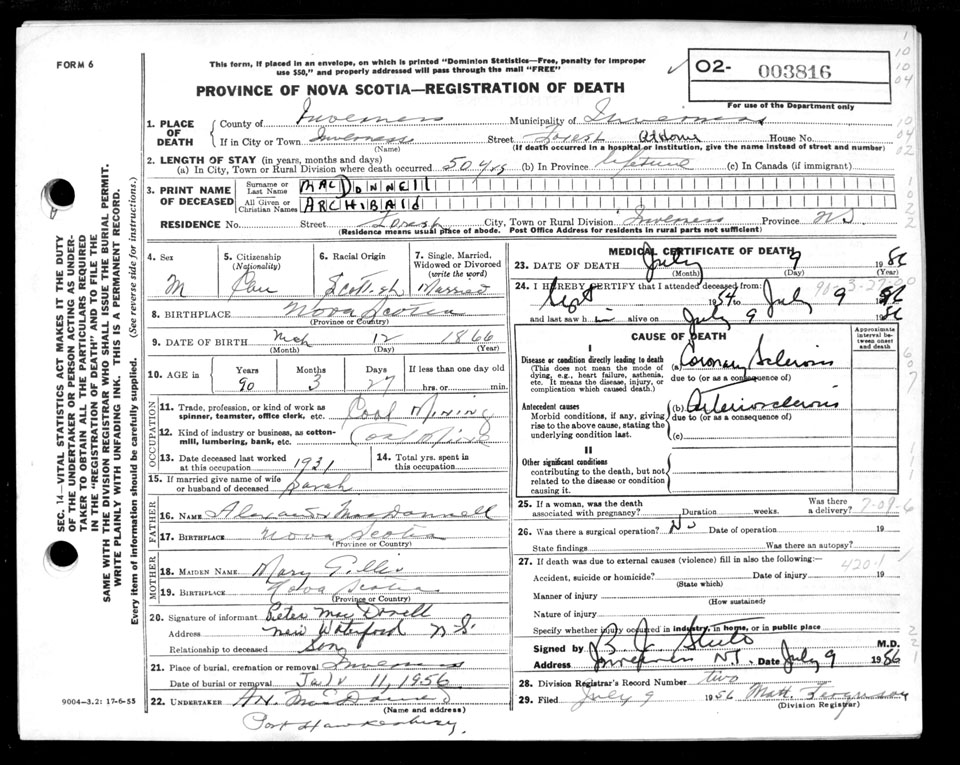 FORM 6
This form, if placed in an envelope, on which is printed "Dominion Statistics—Free, penalty for improper
use $50," and properly addressed will pass through the mail "FREE"
PROVINCE OF NOVA SCOTIA—REGISTRATION OF DEATH
O2- 003816
For use of the Department only
1. PLACE OF DEATH { County of Inverness Municipality of Inverness
If in City or Town Inverness Street Forest At Home House No.
(Name) (If death occurred in a hospital or institution, give the name instead of street and number)
2. LENGTH OF STAY (in years, months and days)
(a) In City, Town or Rural Division where death occurred 50 yrs (b) In Province lifetime (c) In Canada (if immigrant)
3. PRINT NAME OF DECEASED { Surname or Last Name MACDONNELL
All Given or Christian Names ARCHIBALD
RESIDENCE No. Street Forest City, Town or Rural Division Inverness Province NS
(Residence means usual place of abode. Post Office Address for residents in rural parts not sufficient)
4. Sex M
5. Citizenship (Nationality) Can
6. Racial Origin Scottish
7. Single, Married, Widowed or Divorced (write the word) Married
8. BIRTHPLACE Nova Scotia
(Province or Country)
9. DATE OF BIRTH Mch 12 1866
(Month) (Day) (Year)
10. AGE in Years 90 Months 3 Days 27 If less than one day old hrs. or min.
OCCUPATION
11. Trade, profession, or kind of work as spinner, teamster, office clerk, etc. Coal Mining
12. Kind of industry or business, as cotton-mill, lumbering, bank, etc. Coal Mine
13. Date deceased last worked at this occupation 1921
14. Total yrs. spent in this occupation
15. If married give name of wife or husband of deceased Sarah
FATHER
16. NAME Alexander MacDonnell
17. BIRTHPLACE Nova Scotia
(Province or Country)
MOTHER
18. MAIDEN NAME Mary Gillis
19. BIRTHPLACE Nova Scotia
(Province or Country)
20. Signature of informant Peter MacDonell
Address New Waterford N.S.
Relationship to deceased Son
21. Place of burial, cremation or removal Inverness
Date of burial or removal July 11, 1956
22. UNDERTAKER
(Name and address)
Port Hawkesbury
MEDICAL CERTIFICATE OF DEATH
23. DATE OF DEATH July 9 1956
(Month) (Day) (Year)
24. I HEREBY CERTIFY that I attended deceased from:
Sept 1954 to July 9 1956
and last saw him alive on July 9 1956
CAUSE OF DEATH
Approximate interval between onset and death
I
Disease or condition directly leading to death
(This does not mean the mode of dying, e.g., heart failure, asthenia, etc. It means the disease, injury, or complication which caused death.)
(a) Coronary Sclerosis
due to (or as a consequence of)
Antecedent causes
Morbid conditions, if any, giving rise to the above cause, stating the underlying condition last.
(b) Arteriosclerosis
due to (or as a consequence of)
(c)
II
Other significant conditions
contributing to the death, but not related to the disease or condition causing it.
25. If a woman, was the death associated with pregnancy? Duration weeks. Was there a delivery?
26. Was there a surgical operation? No Date of operation 19
State findings Was there an autopsy?
27. If death was due to external causes (violence) fill in also the following:
420.1
Accident, suicide or homicide? Date of injury 19
(State which)
Manner of injury
(How sustained)
Nature of injury
Specify whether injury occurred in industry, in home, or in public place
Signed by M.D.
Address Inverness N.S. Date July 9 1956
28. Division Registrar's Record Number two
29. Filed July 9 1956 Matt. Ferguson
(Division Registrar)
SEC. 14—VITAL STATISTICS ACT MAKES IT THE DUTY
OF THE UNDERTAKER OR PERSON ACTING AS UNDER-
TAKER TO OBTAIN ALL THE PARTICULARS REQUIRED
IN THE "REGISTRATION OF DEATH" AND TO FILE THE
SAME WITH THE DIVISION REGISTRAR WHO SHALL ISSUE THE BURIAL PERMIT.
WRITE PLAINLY WITH UNFADING INK. THIS IS A PERMANENT RECORD.
Every item of information should be carefully supplied. (See reverse side for instructions.)
9004—3.2: 17-6-55